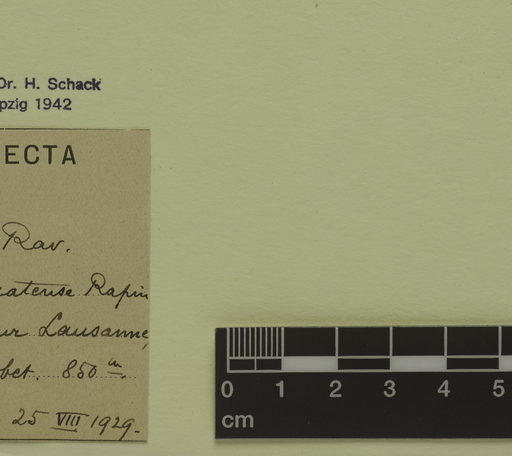 Dr. H. Schack
pzig 1942
ECTA
Rav.
Rapin
ur Lausanne,
bet. 850 m.
25 VIII 1929.
0 1 2 3 4 5
cm